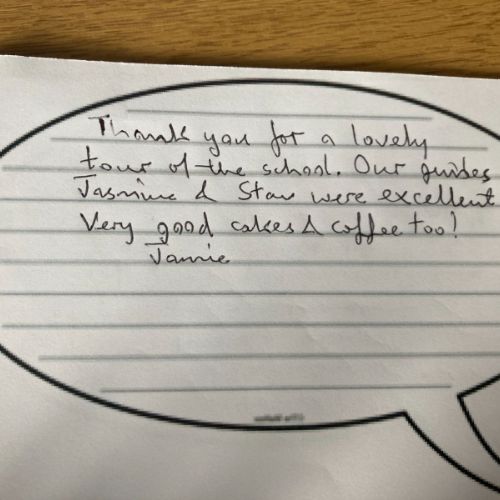 Thank you for a lovely
tour of the school. Our guides
Jasmine & Stan were excellent
Very good cakes & coffee too!
Jamie